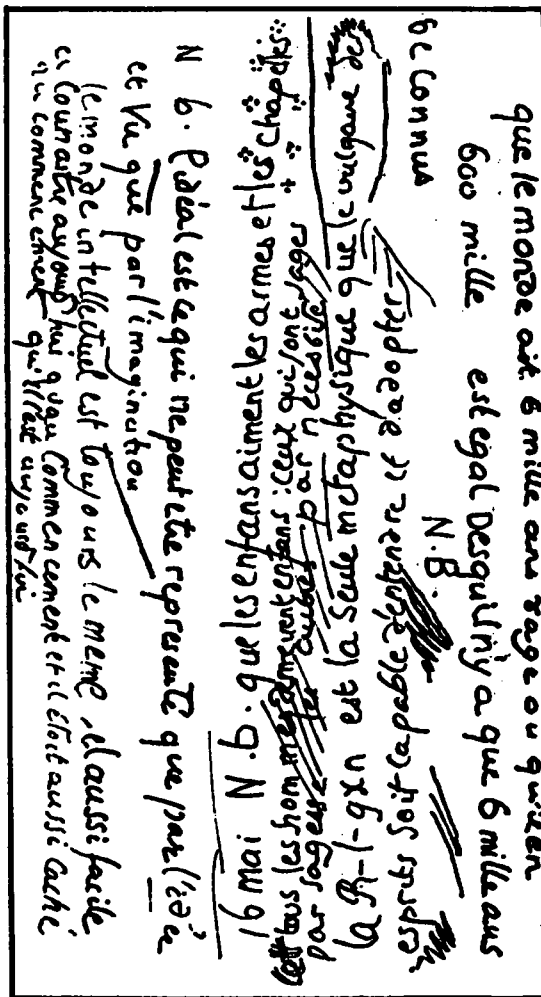 que le monde ait 6 mille ans d'age ou qu'il en
600 mille est egal Des qu'il n'y a que 6 mille ans
de connus
N.B
la R-l-gxn est la seule metaphysique que le vulgaire des
esprits soit capable d'entendre et d'adopter
16 mai N.b. que les enfans aiment les armes et les chapelles
tous les hommes demeurent enfans : ceux qui sont sages
par sagesse les autres par necessité
N b. l'idéal est ce qui ne peut etre representé que par l'idée
et Vu que par l'imagination
le monde intellectuel est toujours le meme, il aussi facile
a Connaitre aujourd'hui qu'au Commencement et il étoit aussi Caché
au commencement qu'il l'est aujourd'hui